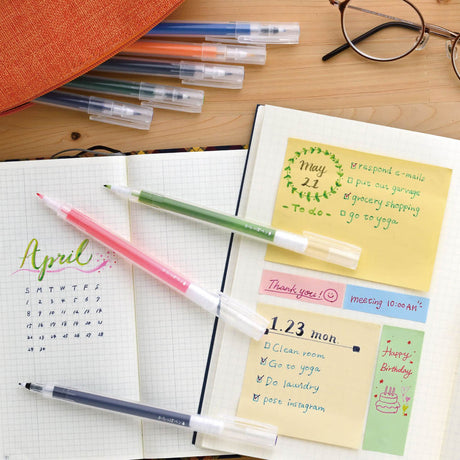 April
S M T W T F S
May
21
- To do -
raspond e-mails
put out garvage
grocery shopping
go to yoga
Thank you!
meeting 10:00AM
1.23 mon.
Clean room
Go to yoga
Do laundry
post instagram
Happy
Birthday